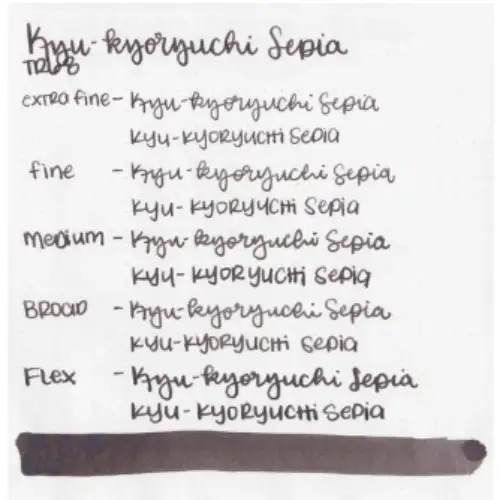 Kyu-kyoryuchi Sepia
TR108
extra fine - Kyu-kyoryuchi Sepia
KYU-KYORYUCHI SEPIA
fine - Kyu-kyoryuchi Sepia
KYU-KYORYUCHI SEPIA
medium - Kyu-kyoryuchi Sepia
KYU-KYORYUCHI SEPIA
BROAD - Kyu-kyoryuchi Sepia
KYU-KYORYUCHI SEPIA
Flex - Kyu-kyoryuchi Sepia
KYU-KYORYUCHI SEPIA